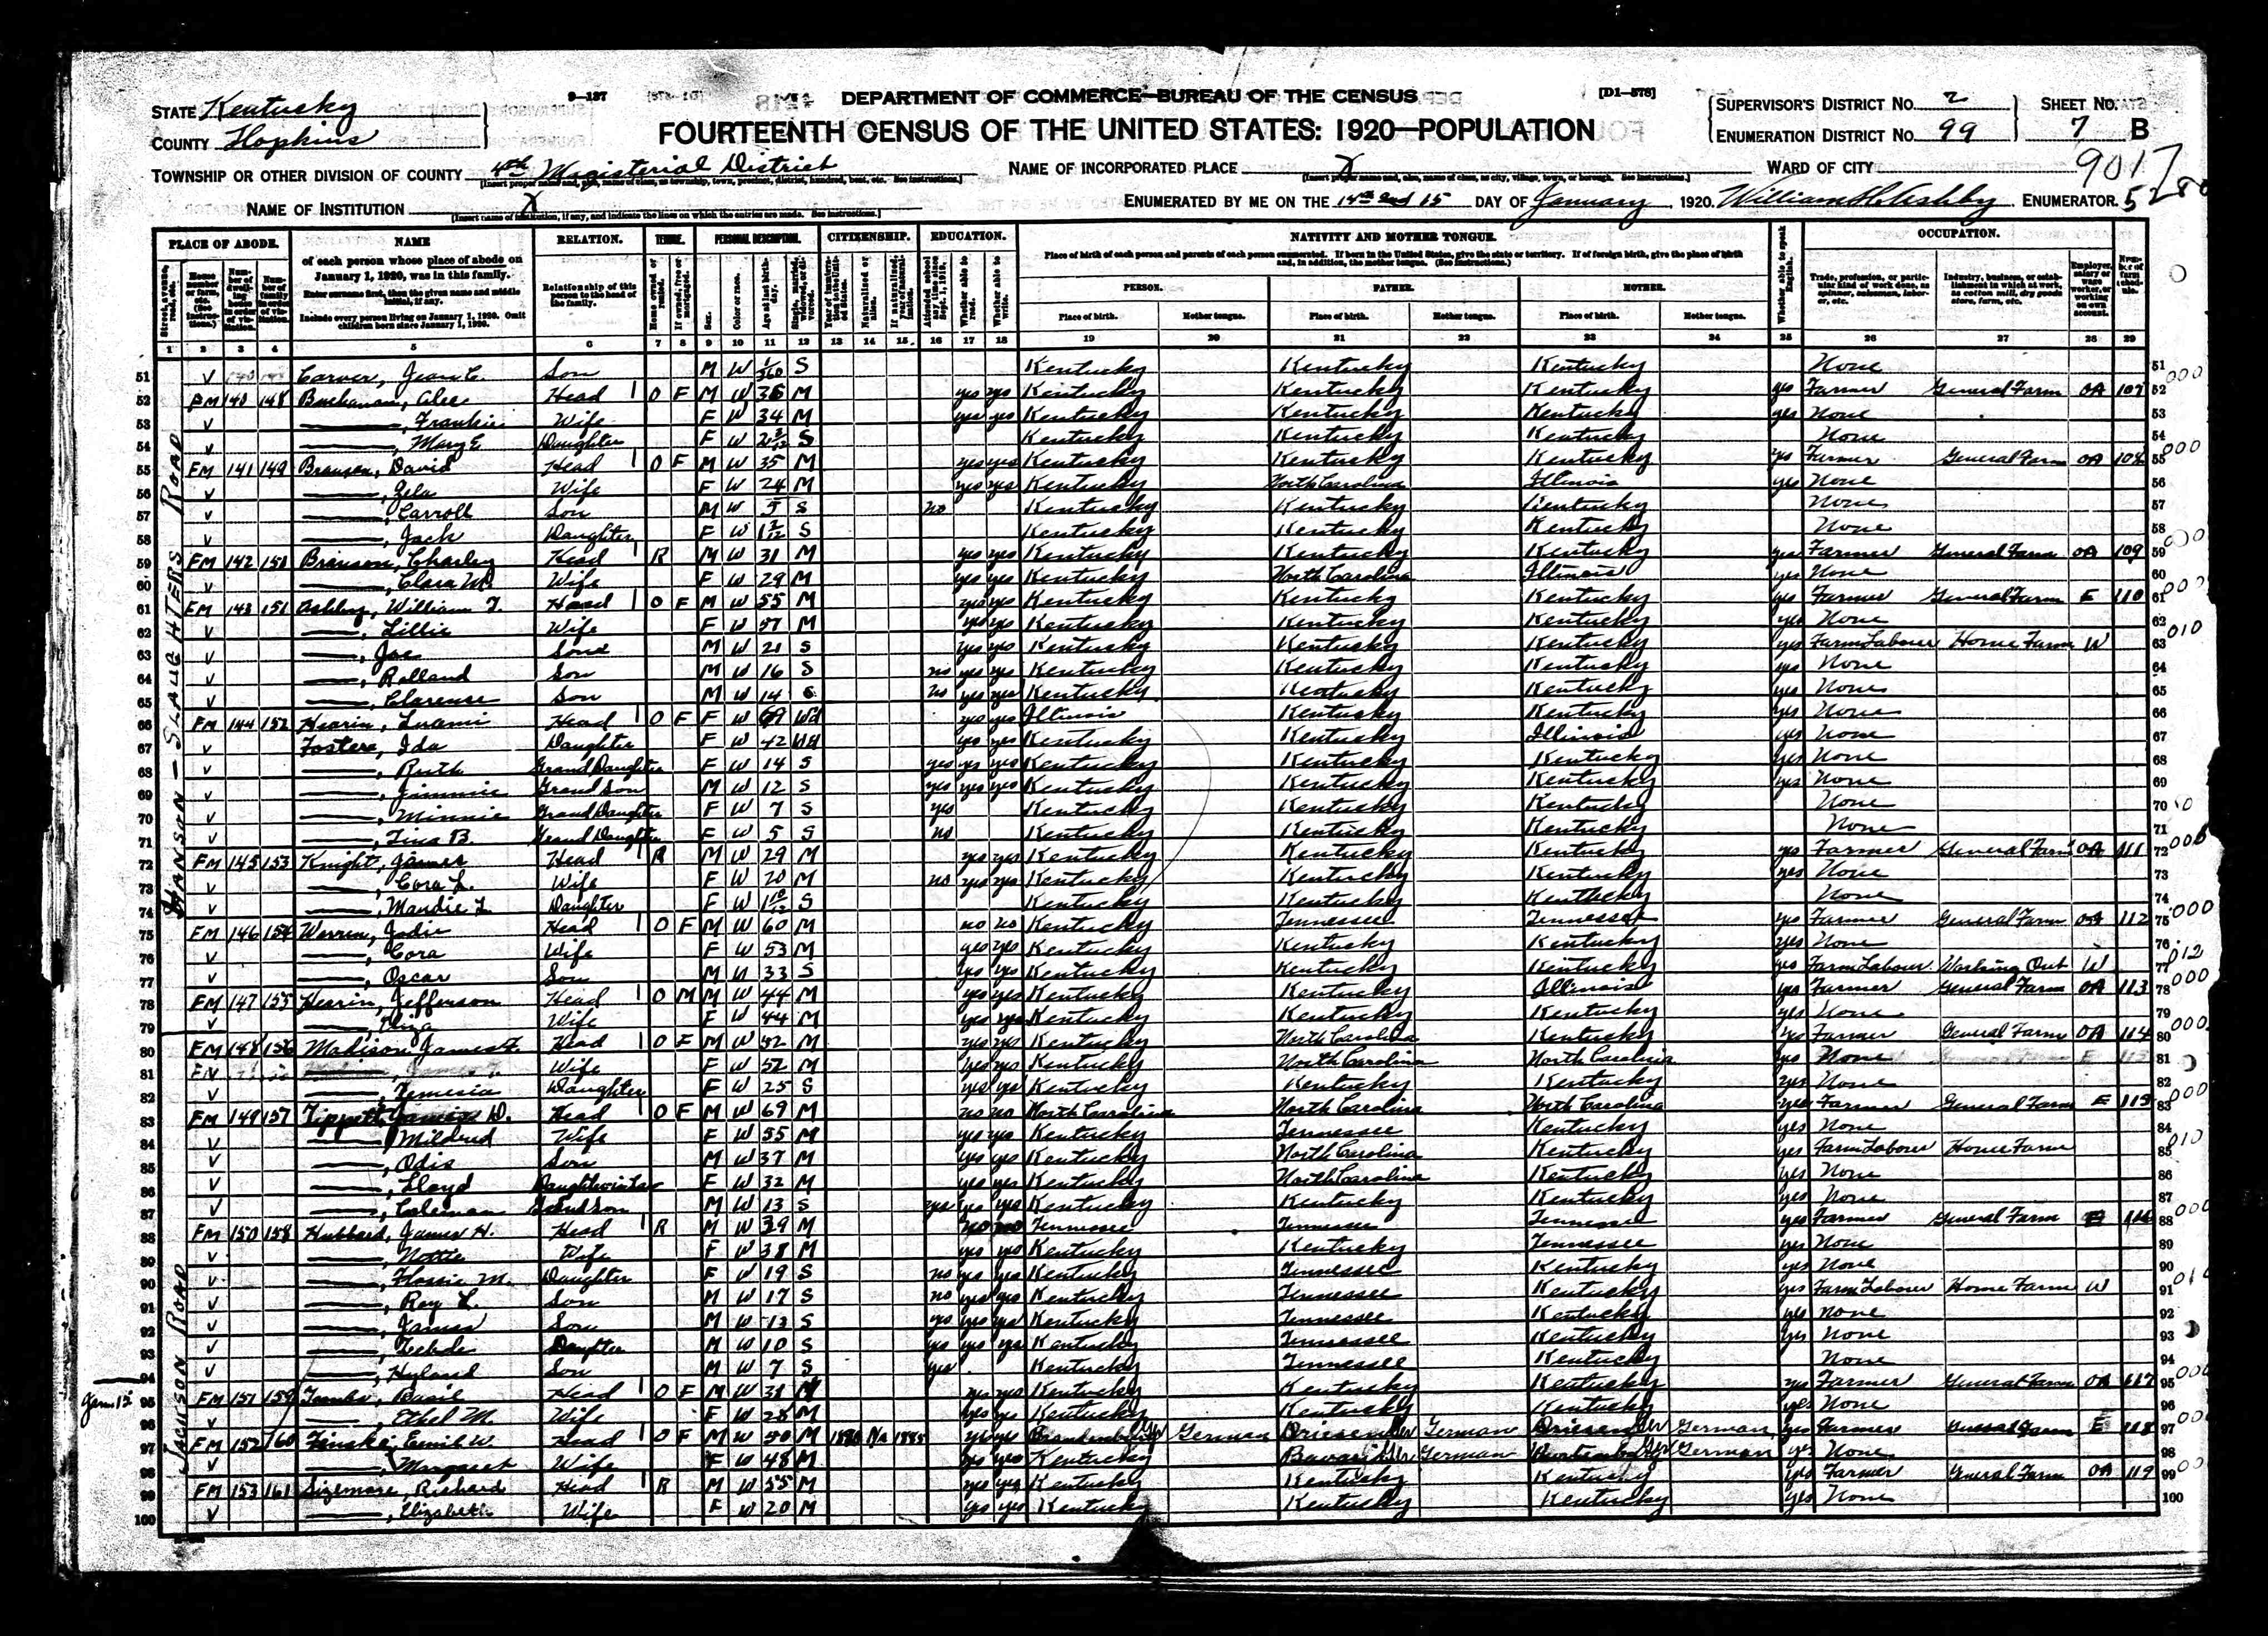 9—137
[D1—578]
DEPARTMENT OF COMMERCE—BUREAU OF THE CENSUS
FOURTEENTH CENSUS OF THE UNITED STATES: 1920—POPULATION
STATE Kentucky
COUNTY Hopkins
SUPERVISOR'S DISTRICT No. 2
ENUMERATION DISTRICT No. 99
SHEET No. 7 B
9017
TOWNSHIP OR OTHER DIVISION OF COUNTY 4th Magisterial District
NAME OF INCORPORATED PLACE X
WARD OF CITY
NAME OF INSTITUTION X
ENUMERATED BY ME ON THE 14th and 15 DAY OF January, 1920. William H. Ashby ENUMERATOR.
PLACE OF ABODE. NAME RELATION. TENURE. PERSONAL DESCRIPTION. CITIZENSHIP. EDUCATION. NATIVITY AND MOTHER TONGUE. OCCUPATION.
of each person whose place of abode on January 1, 1920, was in this family.
Enter surname first, then the given name and middle initial, if any.
Include every person living on January 1, 1920. Omit children born since January 1, 1920.
Relationship of this person to the head of the family.
Place of birth of each person and parents of each person enumerated. If born in the United States, give the state or territory. If of foreign birth, give the place of birth and, in addition, the mother tongue. (See Instructions.)
PERSON. FATHER. MOTHER.
Place of birth. Mother tongue. Place of birth. Mother tongue. Place of birth. Mother tongue.
1 2 3 4 5 6 7 8 9 10 11 12 13 14 15 16 17 18 19 20 21 22 23 24 25 26 27 28 29
HANSON – SLAUGHTERS ROAD
JACKSON ROAD
51 Carver, Jean C. Son M W S Kentucky Kentucky Kentucky None
52 FM 140 148 Buchanan, Alec Head 1 O F M W 36 M yes yes Kentucky Kentucky Kentucky yes Farmer General Farm OA 107
53 ———, Frankie Wife F W 34 M yes yes Kentucky Kentucky Kentucky yes None
54 ———, Mary E Daughter F W S Kentucky Kentucky Kentucky None
55 FM 141 149 Branson, David Head 1 O F M W 35 M yes yes Kentucky Kentucky Kentucky yes Farmer General Farm OA 108
56 ———, Zela Wife F W 24 M yes yes Kentucky North Carolina Illinois yes None
57 ———, Carroll Son M W 5 S no Kentucky Kentucky Kentucky None
58 ———, Jack Daughter F W S Kentucky Kentucky Kentucky None
59 FM 142 150 Branson, Charley Head 1 R M W 31 M yes yes Kentucky Kentucky Kentucky yes Farmer General Farm OA 109
60 ———, Clara M. Wife F W 29 M yes yes Kentucky North Carolina Illinois yes None
61 FM 143 151 Ashby, William T. Head 1 O F M W 55 M yes yes Kentucky Kentucky Kentucky yes Farmer General Farm E 110
62 ———, Lillie Wife F W 57 M yes yes Kentucky Kentucky Kentucky yes None
63 ———, Joe Son M W 21 S yes yes Kentucky Kentucky Kentucky yes Farm Laborer Home Farm W
64 ———, Rolland Son M W 16 S no yes yes Kentucky Kentucky Kentucky yes None
65 ———, Clarence Son M W 14 S no yes yes Kentucky Kentucky Kentucky yes None
66 FM 144 152 Hearin, Head 1 O F F W 69 Wd yes yes Illinois Kentucky Kentucky yes None
67 Foster, Ida Daughter F W 42 Wd yes yes Kentucky Kentucky Illinois yes None
68 ———, Ruth Grand Daughter F W 14 S yes yes yes Kentucky Kentucky Kentucky yes None
69 ———, Jimmie Grand Son M W 12 S yes yes yes Kentucky Kentucky Kentucky yes None
70 ———, Minnie Grand Daughter F W 7 S yes Kentucky Kentucky Kentucky None
71 ———, Tina B. Grand Daughter F W 5 S no Kentucky Kentucky Kentucky None
72 FM 145 153 Knight, James Head 1 R M W 29 M yes yes Kentucky Kentucky Kentucky yes Farmer General Farm OA 111
73 ———, Cora L. Wife F W 20 M no yes yes Kentucky Kentucky Kentucky yes None
74 ———, Maudie L. Daughter F W 1 10/12 S Kentucky Kentucky Kentucky None
75 FM 146 154 Warren, Jodie Head 1 O F M W 60 M no no Kentucky Tennessee Tennessee yes Farmer General Farm OA 112
76 ———, Cora Wife F W 53 M yes yes Kentucky Kentucky Kentucky yes None
77 ———, Oscar Son M W 33 S yes yes Kentucky Kentucky Kentucky yes Farm Labour Working Out W
78 FM 147 155 Hearin, Jefferson Head 1 O M M W 44 M yes yes Kentucky Kentucky Illinois yes Farmer General Farm OA 113
79 ———, Eliza Wife F W 44 M yes yes Kentucky Kentucky Kentucky yes None
80 FM 148 156 Madison, James F. Head 1 O F M W 52 M yes yes Kentucky North Carolina Kentucky yes Farmer General Farm OA 114
81 Wife F W 52 M yes yes Kentucky North Carolina North Carolina yes None
82 ———, Daughter F W 25 S yes yes Kentucky Kentucky Kentucky yes None
83 FM 149 157 Tippett, James D. Head 1 O F M W 69 M no no North Carolina North Carolina North Carolina yes Farmer General Farm E 115
84 ———, Mildred Wife F W 55 M yes yes Kentucky Tennessee Kentucky yes None
85 ———, Odis Son M W 37 M yes yes Kentucky North Carolina Kentucky yes Farm Laborer Home Farm
86 ———, Lloyd Daughter in Law F W 32 M yes yes Kentucky North Carolina Kentucky yes None
87 ———, Coleman Grandson M W 13 S yes yes yes Kentucky Kentucky Kentucky yes None
88 FM 150 158 Hubbard, James H. Head 1 R M W 39 M no no Tennessee Tennessee Tennessee yes Farmer General Farm 116
89 ———, Nottie Wife F W 38 M yes yes Kentucky Kentucky Tennessee yes None
90 ———, Flossie M. Daughter F W 19 S no yes yes Kentucky Tennessee Kentucky yes None
91 ———, Roy L. Son M W 17 S no yes yes Kentucky Tennessee Kentucky yes Farm Laborer Home Farm W
92 ———, James Son M W 13 S yes yes yes Kentucky Tennessee Kentucky yes none
93 Daughter M W 10 S yes yes yes Kentucky Tennessee Kentucky yes None
94 ———, Hyland Son M W 7 S yes Kentucky Tennessee Kentucky None
Jan 15
95 FM 151 159 Tombs, Basil Head 1 O F M W 31 M yes yes Kentucky Kentucky Kentucky yes Farmer General Farm OA 117
96 ———, Ethel M. Wife F W 28 M yes yes Kentucky Kentucky Kentucky yes None
97 FM 152 160 Finske, Emil W. Head 1 O F M W 50 M 1880 Na 1885 yes yes Brandenburg Ger German Ger German Ger German yes Farmer General Farm E 118
98 ———, Margaret Wife F W 48 M yes yes Kentucky Bavaria Ger German Ger German yes None
99 FM 153 161 Sizemore, Richard Head 1 R M W 55 M yes yes Kentucky Kentucky Kentucky yes Farmer General Farm OA 119
100 ———, Elizabeth Wife F W 20 M yes yes Kentucky Kentucky Kentucky yes None